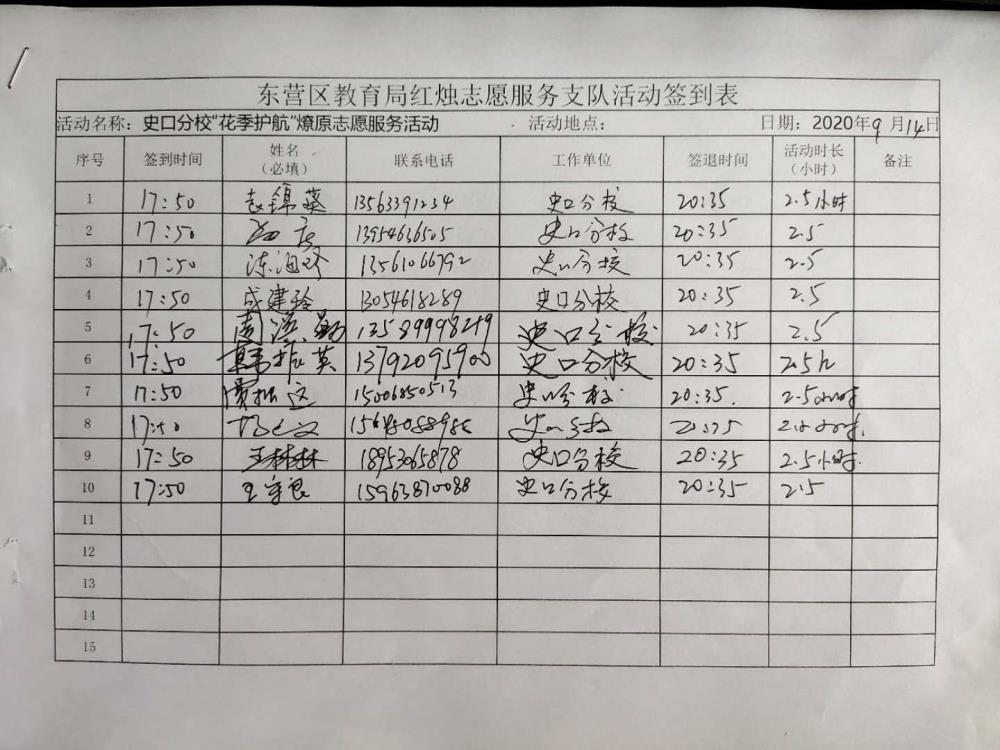 东营区教育局红烛志愿服务支队活动签到表
活动名称：史口分校“花季护航”燎原志愿服务活动 活动地点： 日期：2020年9月14日
序号 签到时间 姓名（必填） 联系电话 工作单位 签退时间 活动时长（小时） 备注
1 17:50 锦葵 13563391234 史口分校 20:35 2.5小时
2 17:50 13954636505 史口分校 20:35 2.5
3 17:50 13561066792 史口分校 20:35 2.5
4 17:50 成建玲 13054618289 史口分校 20:35 2.5
5 17:50 周 13589998249 史口分校 20:35 2.5
6 17:50 韩振英 13792095900 史口分校 20:35 2.5h
7 17:50 15006850513 史口分校 20:35. 2.5小时
8 17:50 史口分校 20:35 2.5小时.
9 17:50 王林林 18953065878 史口分校 20:35 2.5小时.
10 17:50 王守良 15963870088 史口分校 20:35 2.5
11
12
13
14
15